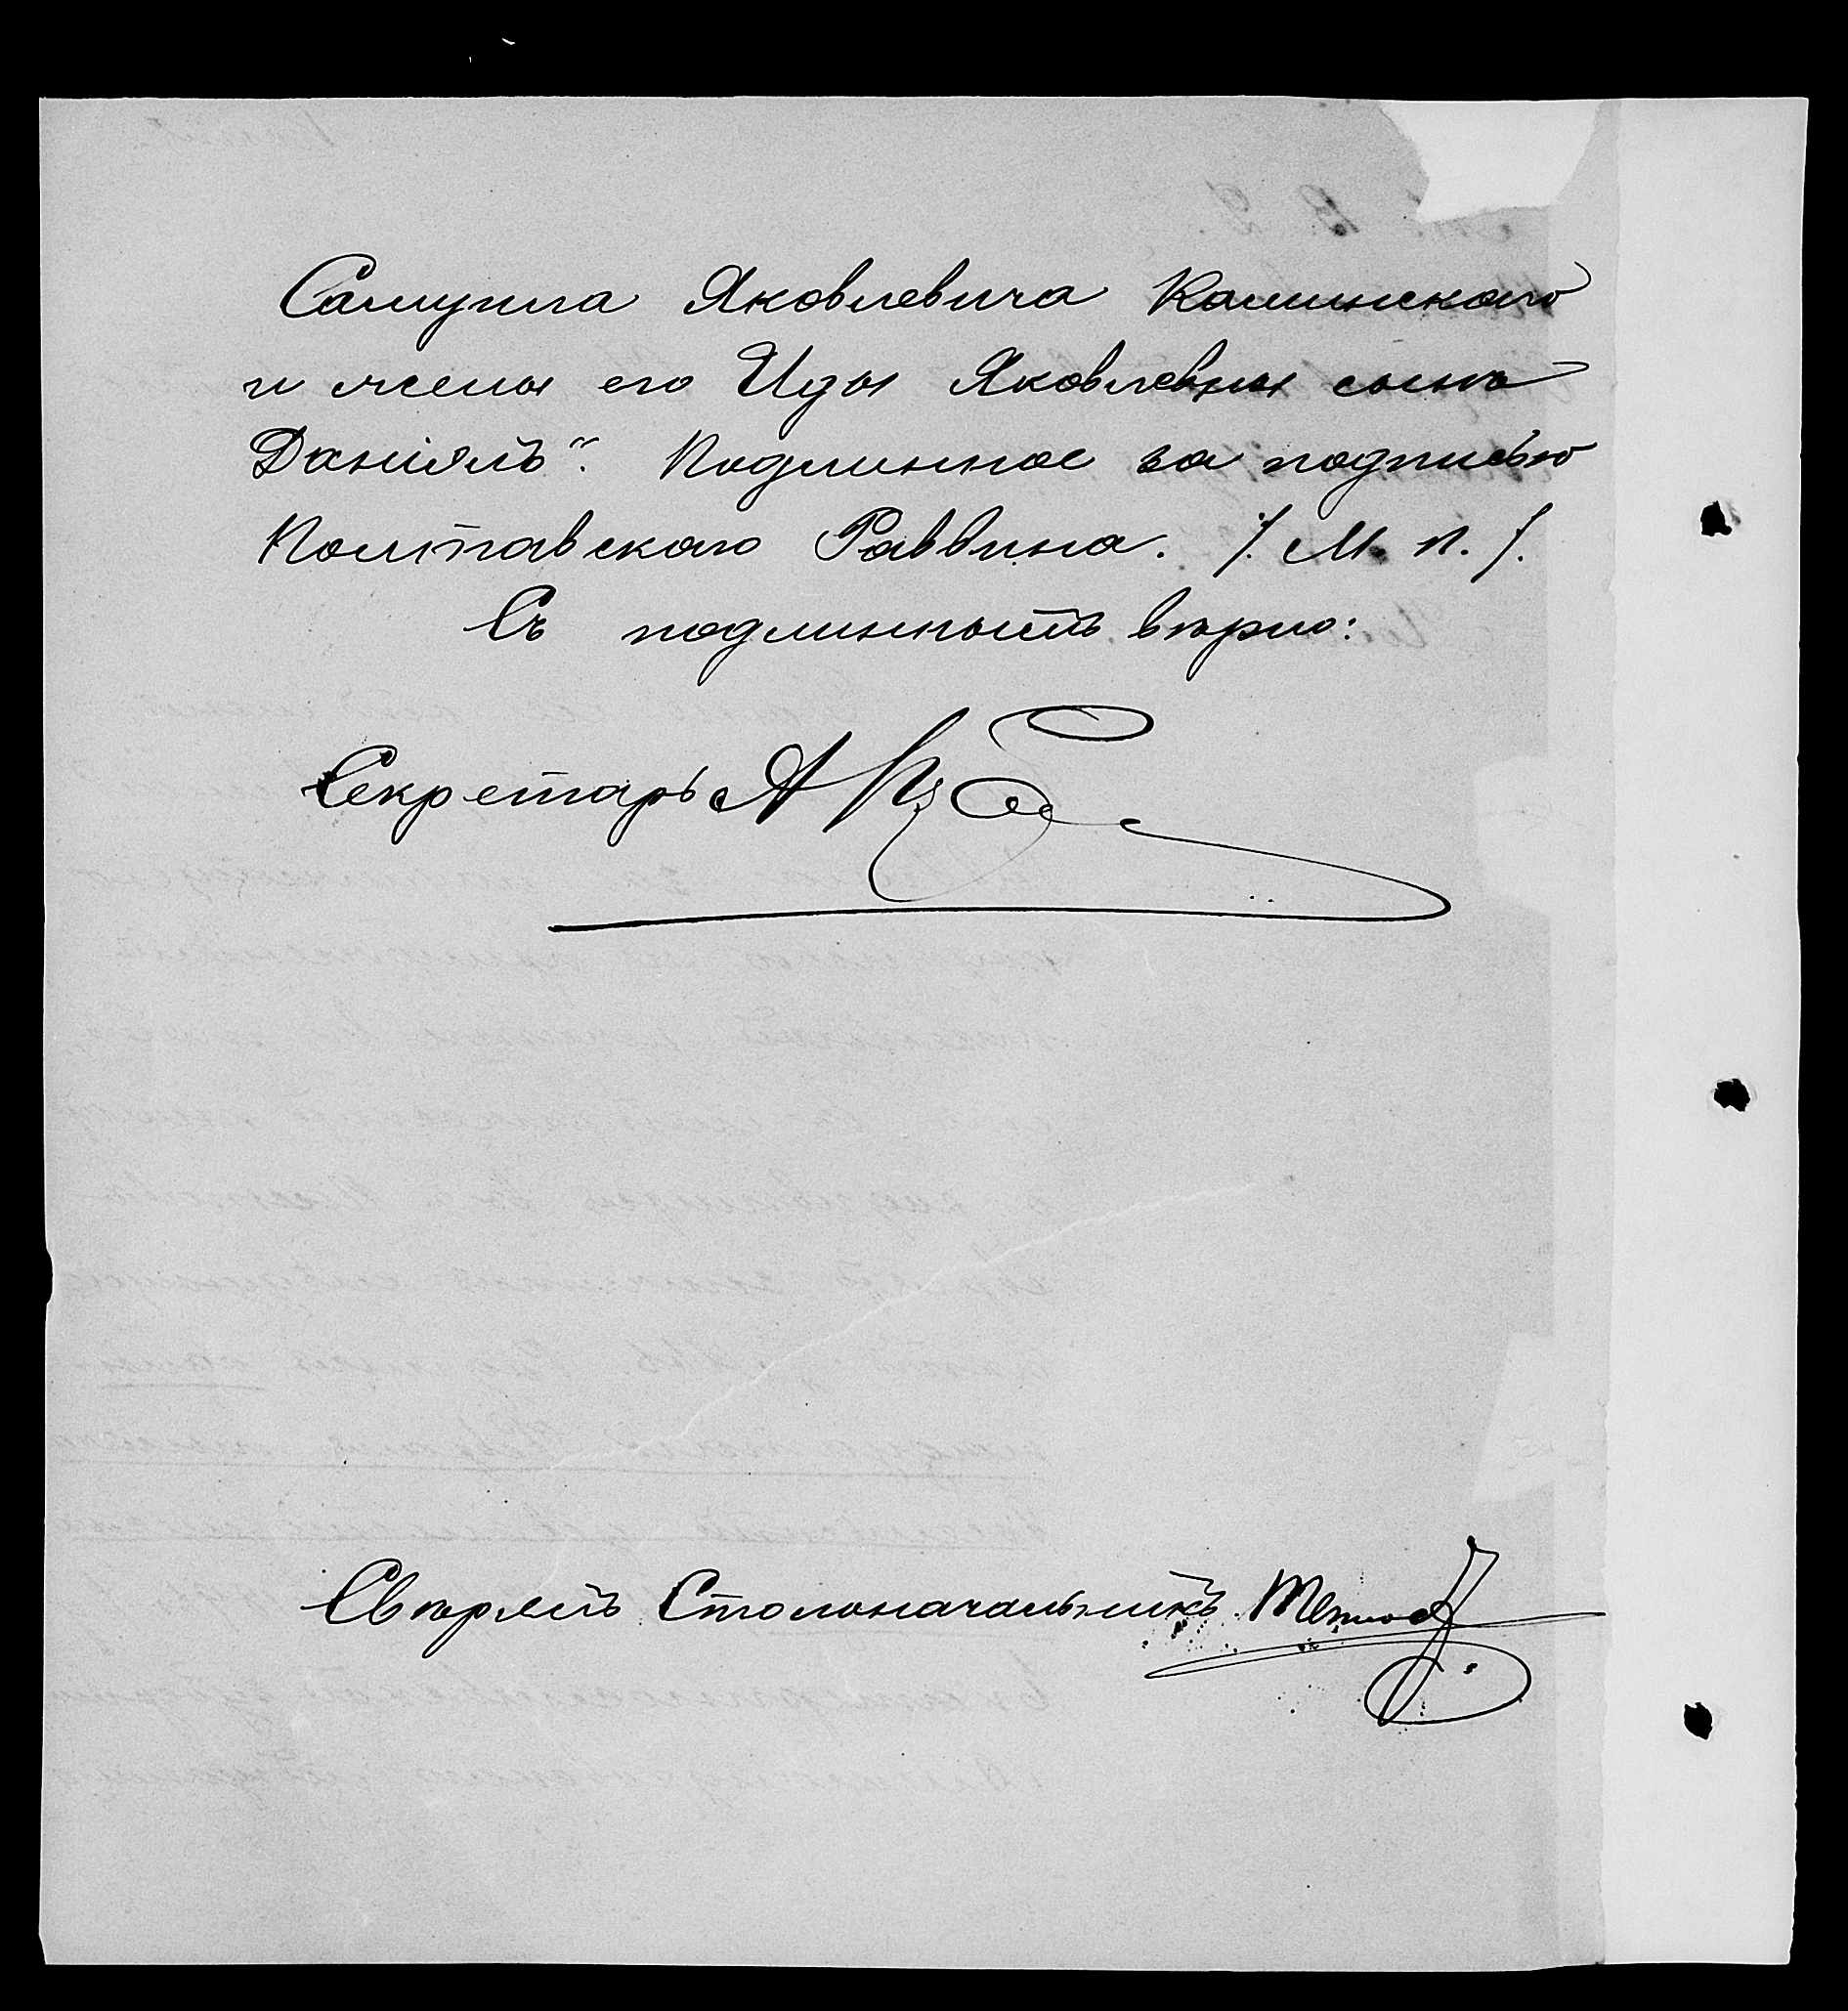 Самуила Яковлевича Каминскаго
и жены его Иды Яковлевны сынъ
Даніилъ". Подлинное за подписью
Полтавскаго Раввина. /. М. п. /.
Съ подлиннымъ вѣрно:
Секретарь А
Свѣрялъ Столоначальникъ